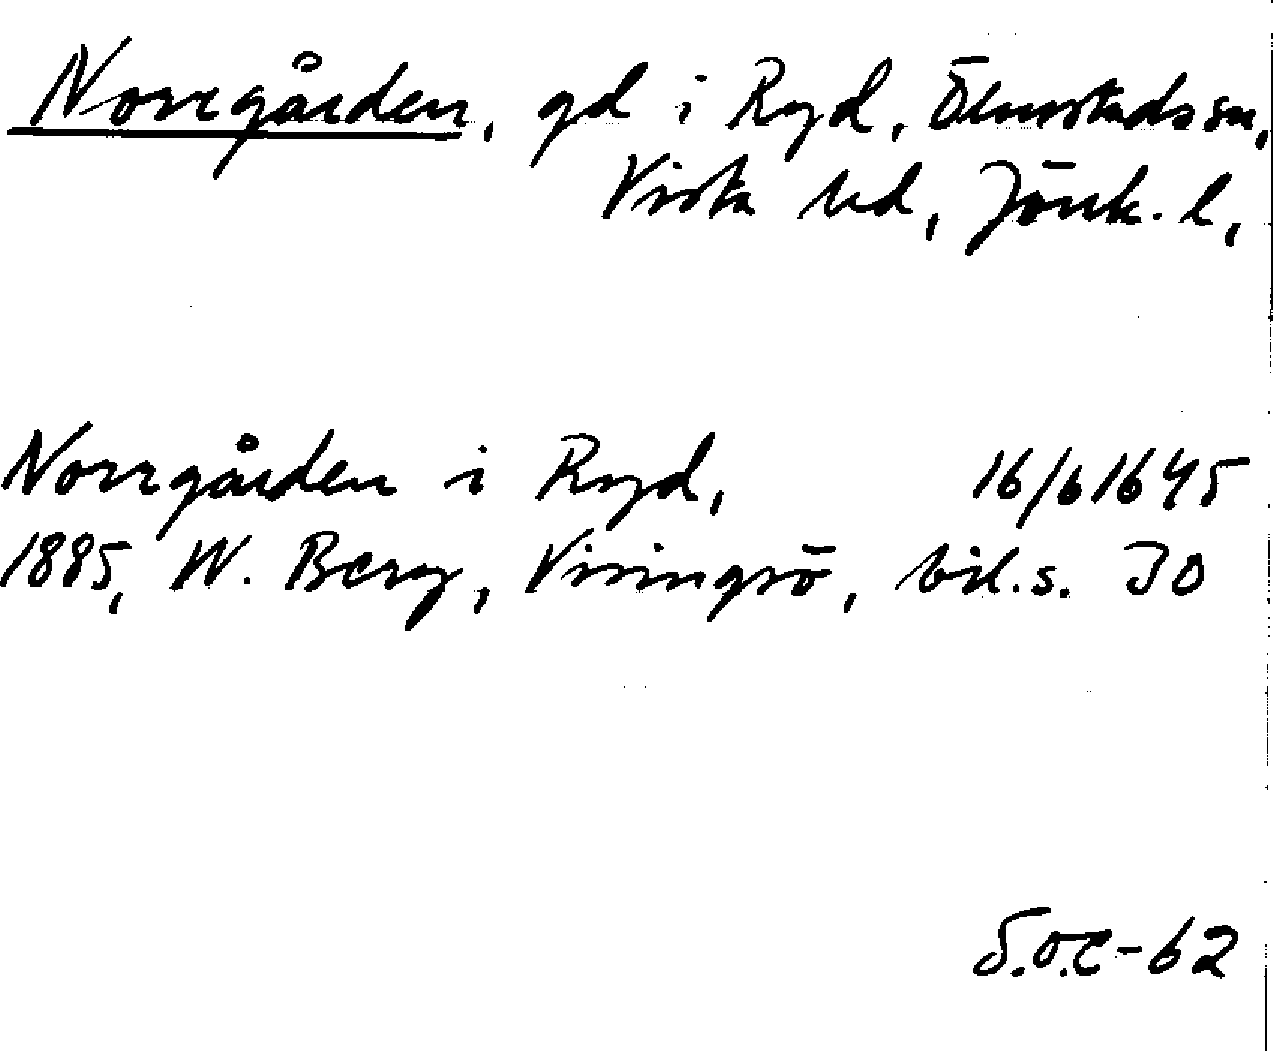 Norrgården, gd i Ryd, Ölmstads sn,
Vista hd, Jönk. l,
Norrgården i Ryd, 16/6 1645
1885, W. Berg, Visingsö, bil. s. 30
S.O.C-62